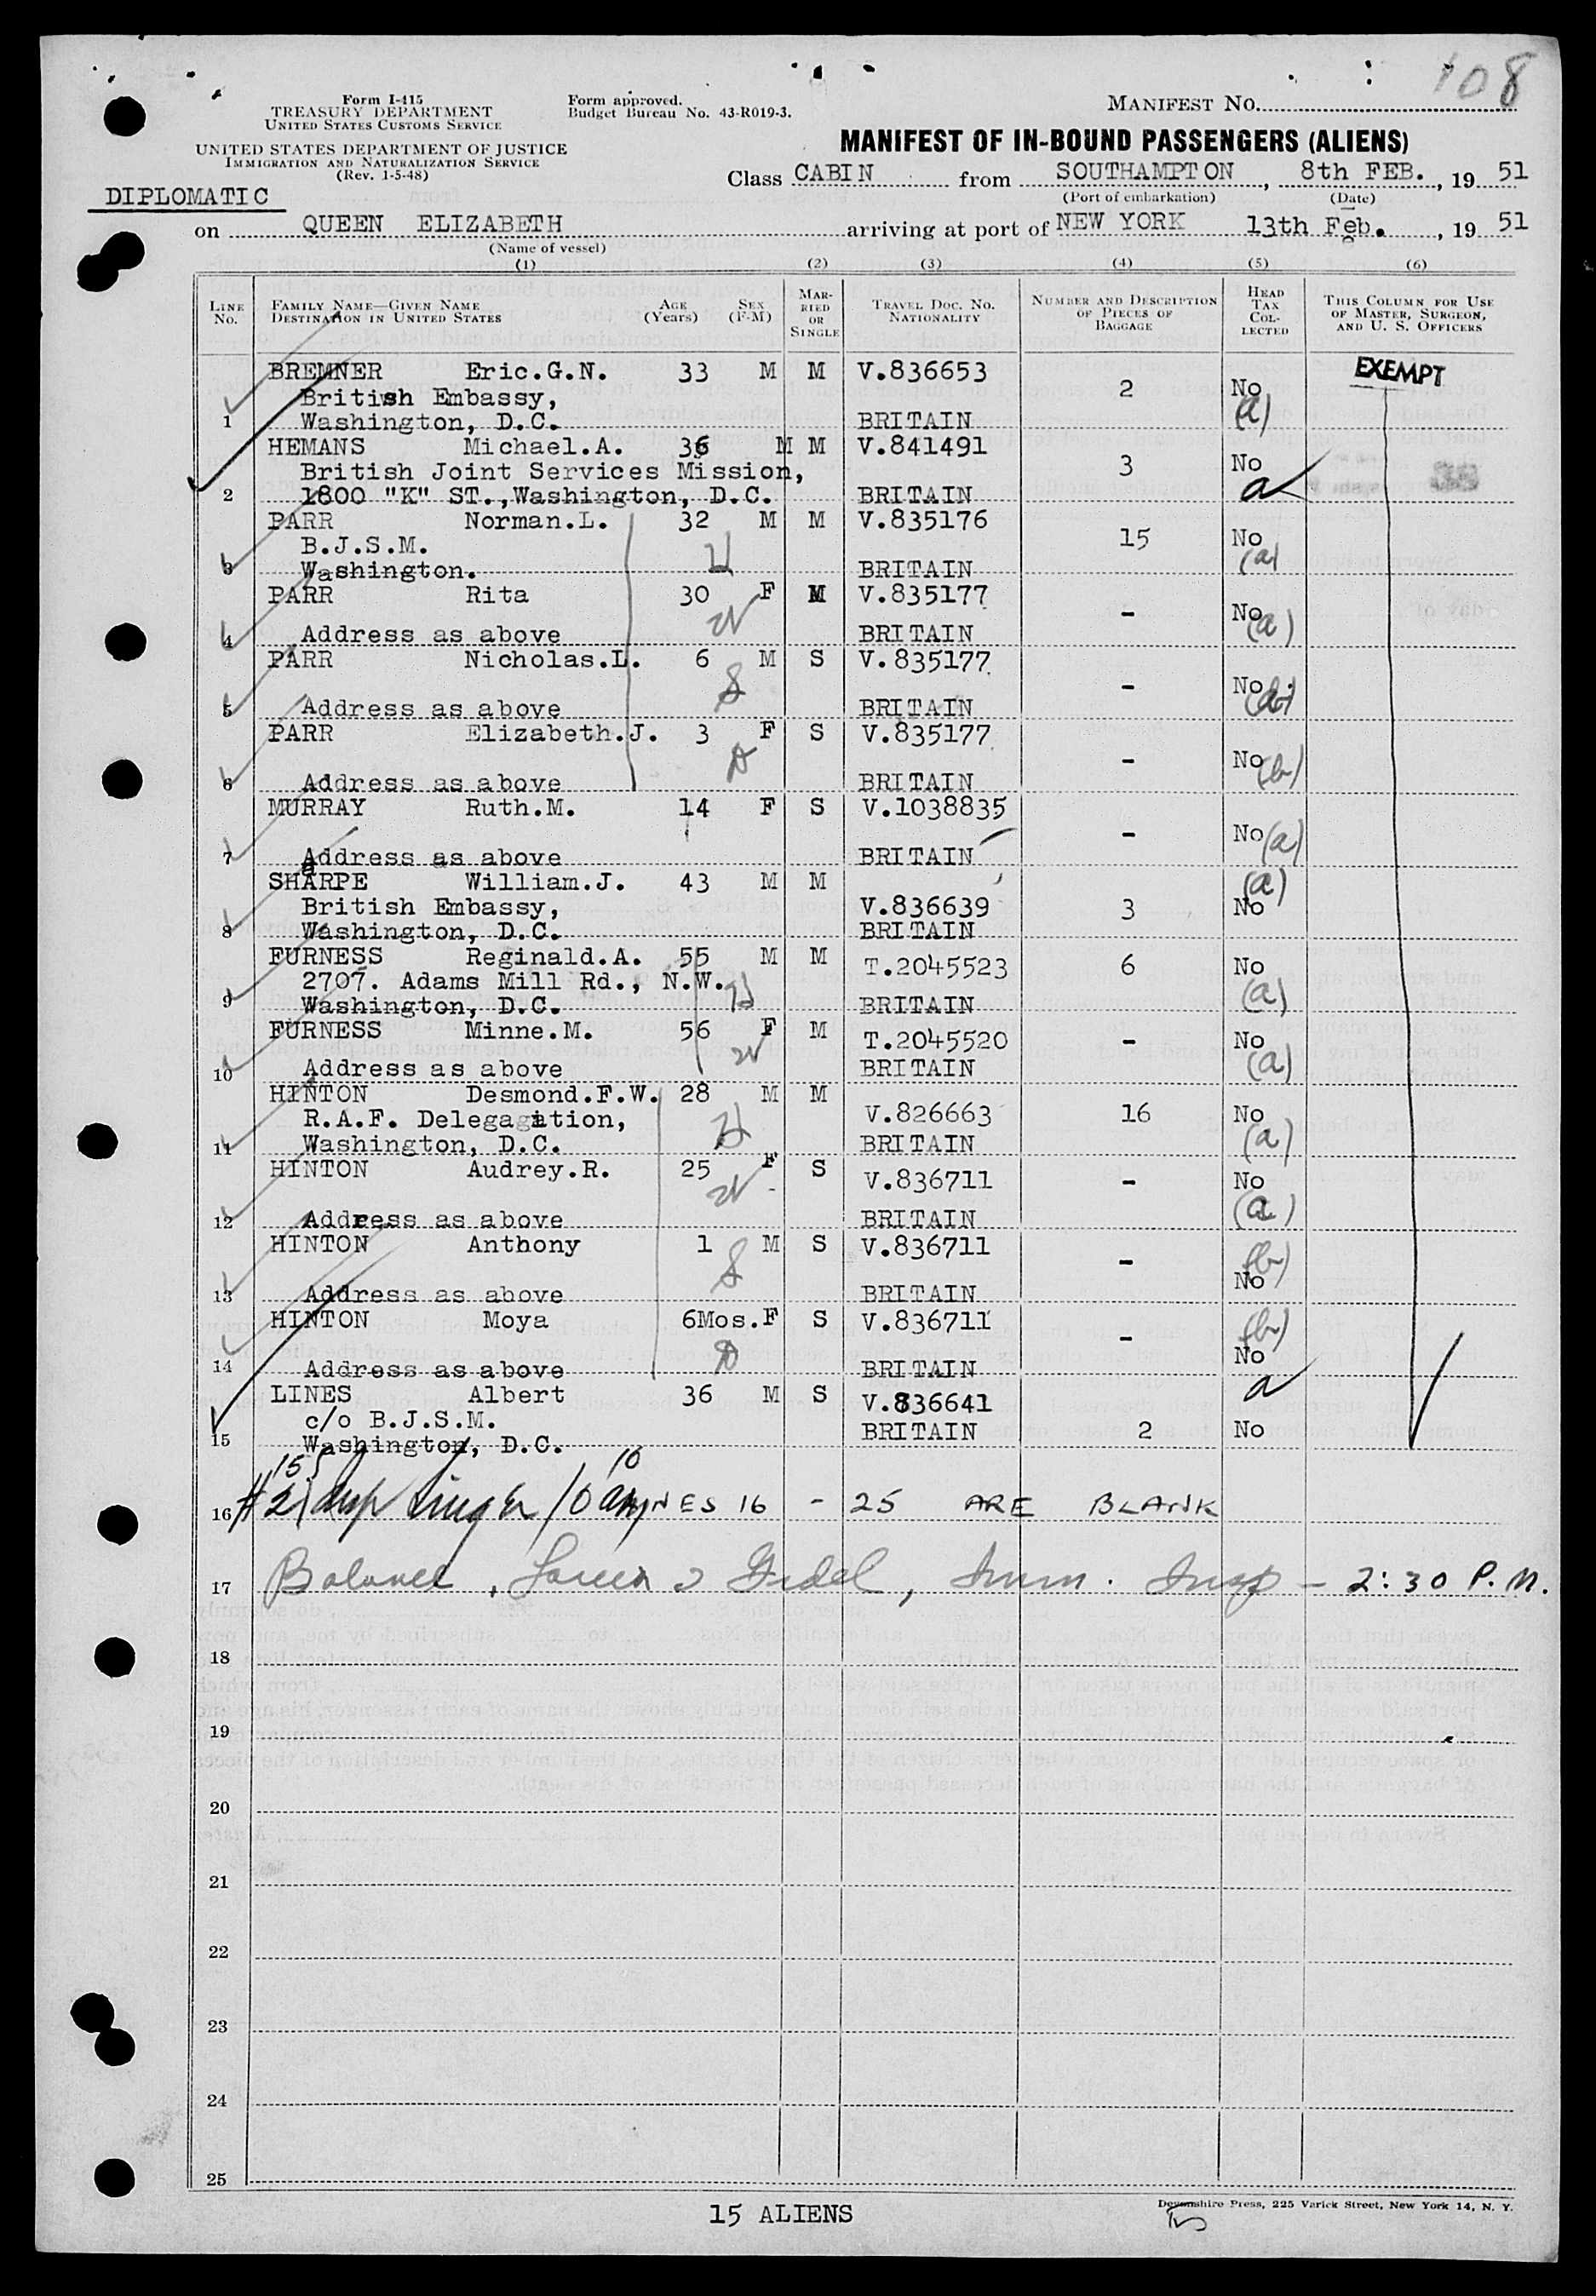 108
Form I-415
TREASURY DEPARTMENT
UNITED STATES CUSTOMS SERVICE
UNITED STATES DEPARTMENT OF JUSTICE
IMMIGRATION AND NATURALIZATION SERVICE
(Rev. 1-5-48)
Form approved.
Budget Bureau No. 43-R019-3.
MANIFEST NO.
MANIFEST OF IN-BOUND PASSENGERS (ALIENS)
Class CABIN from SOUTHAMPTON, 8th FEB., 19 51
(Port of embarkation) (Date)
DIPLOMATIC
on QUEEN ELIZABETH arriving at port of NEW YORK 13th Feb., 19 51
(Name of vessel)
(1) (2) (3) (4) (5) (6)
LINE No. FAMILY NAME—GIVEN NAME DESTINATION IN UNITED STATES AGE (Years) SEX (F-M) MARRIED OR SINGLE TRAVEL DOC. NO. NATIONALITY NUMBER AND DESCRIPTION OF PIECES OF BAGGAGE HEAD TAX COLLECTED THIS COLUMN FOR USE OF MASTER, SURGEON, AND U. S. OFFICERS
BREMNER Eric.G.N. 33 M M V.836653 EXEMPT
British Embassy, 2 No
1 Washington, D.C. BRITAIN (a)
HEMANS Michael.A. 36 M M V.841491
British Joint Services Mission, 3 No
2 1800 "K" ST.,Washington, D.C. BRITAIN a
PARR Norman.L. 32 M M V.835176
B.J.S.M. 15 No
3 Washington. H BRITAIN (a)
PARR Rita 30 F M V.835177
W - No (a)
4 Address as above BRITAIN
PARR Nicholas.L. 6 M S V.835177
S - No
5 Address as above BRITAIN
PARR Elizabeth.J. 3 F S V.835177
D - No (b)
6 Address as above BRITAIN
MURRAY Ruth.M. 14 F S V.1038835
- No (a)
7 Address as above BRITAIN
SHARPE William.J. 43 M M (a)
British Embassy, V.836639 3 No
8 Washington, D.C. BRITAIN
FURNESS Reginald.A. 55 M M T.2045523 6 No
2707. Adams Mill Rd., N.W. H (a)
9 Washington, D.C. BRITAIN
FURNESS Minne.M. 56 F M T.2045520 - No
W (a)
10 Address as above BRITAIN
HINTON Desmond.F.W. 28 M M
R.A.F. Delegagtion, H V.826663 16 No
11 Washington, D.C. BRITAIN (a)
HINTON Audrey.R. 25 F S V.836711 - No
W (a)
12 Address as above BRITAIN
HINTON Anthony 1 M S V.836711
S - (b) No
13 Address as above BRITAIN
HINTON Moya 6Mos. F S V.836711
D - (b) No
14 Address as above BRITAIN
LINES Albert 36 M S V.836641 a
c/o B.J.S.M.
15 Washington, D.C. BRITAIN 2 No
16 LINES 16 - 25 ARE BLANK
17 Balance, Imm. Insp - 2:30 P.M.
18
19
20
21
22
23
24
25
15 ALIENS
Devonshire Press, 225 Varick Street, New York 14, N. Y.